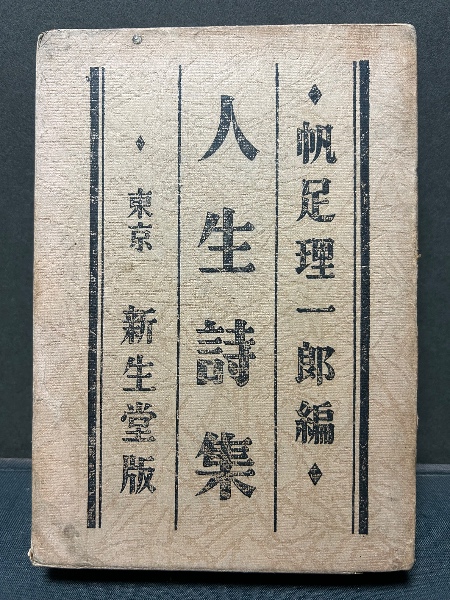 帆足理一郎編
人生詩集
東京 新生堂版